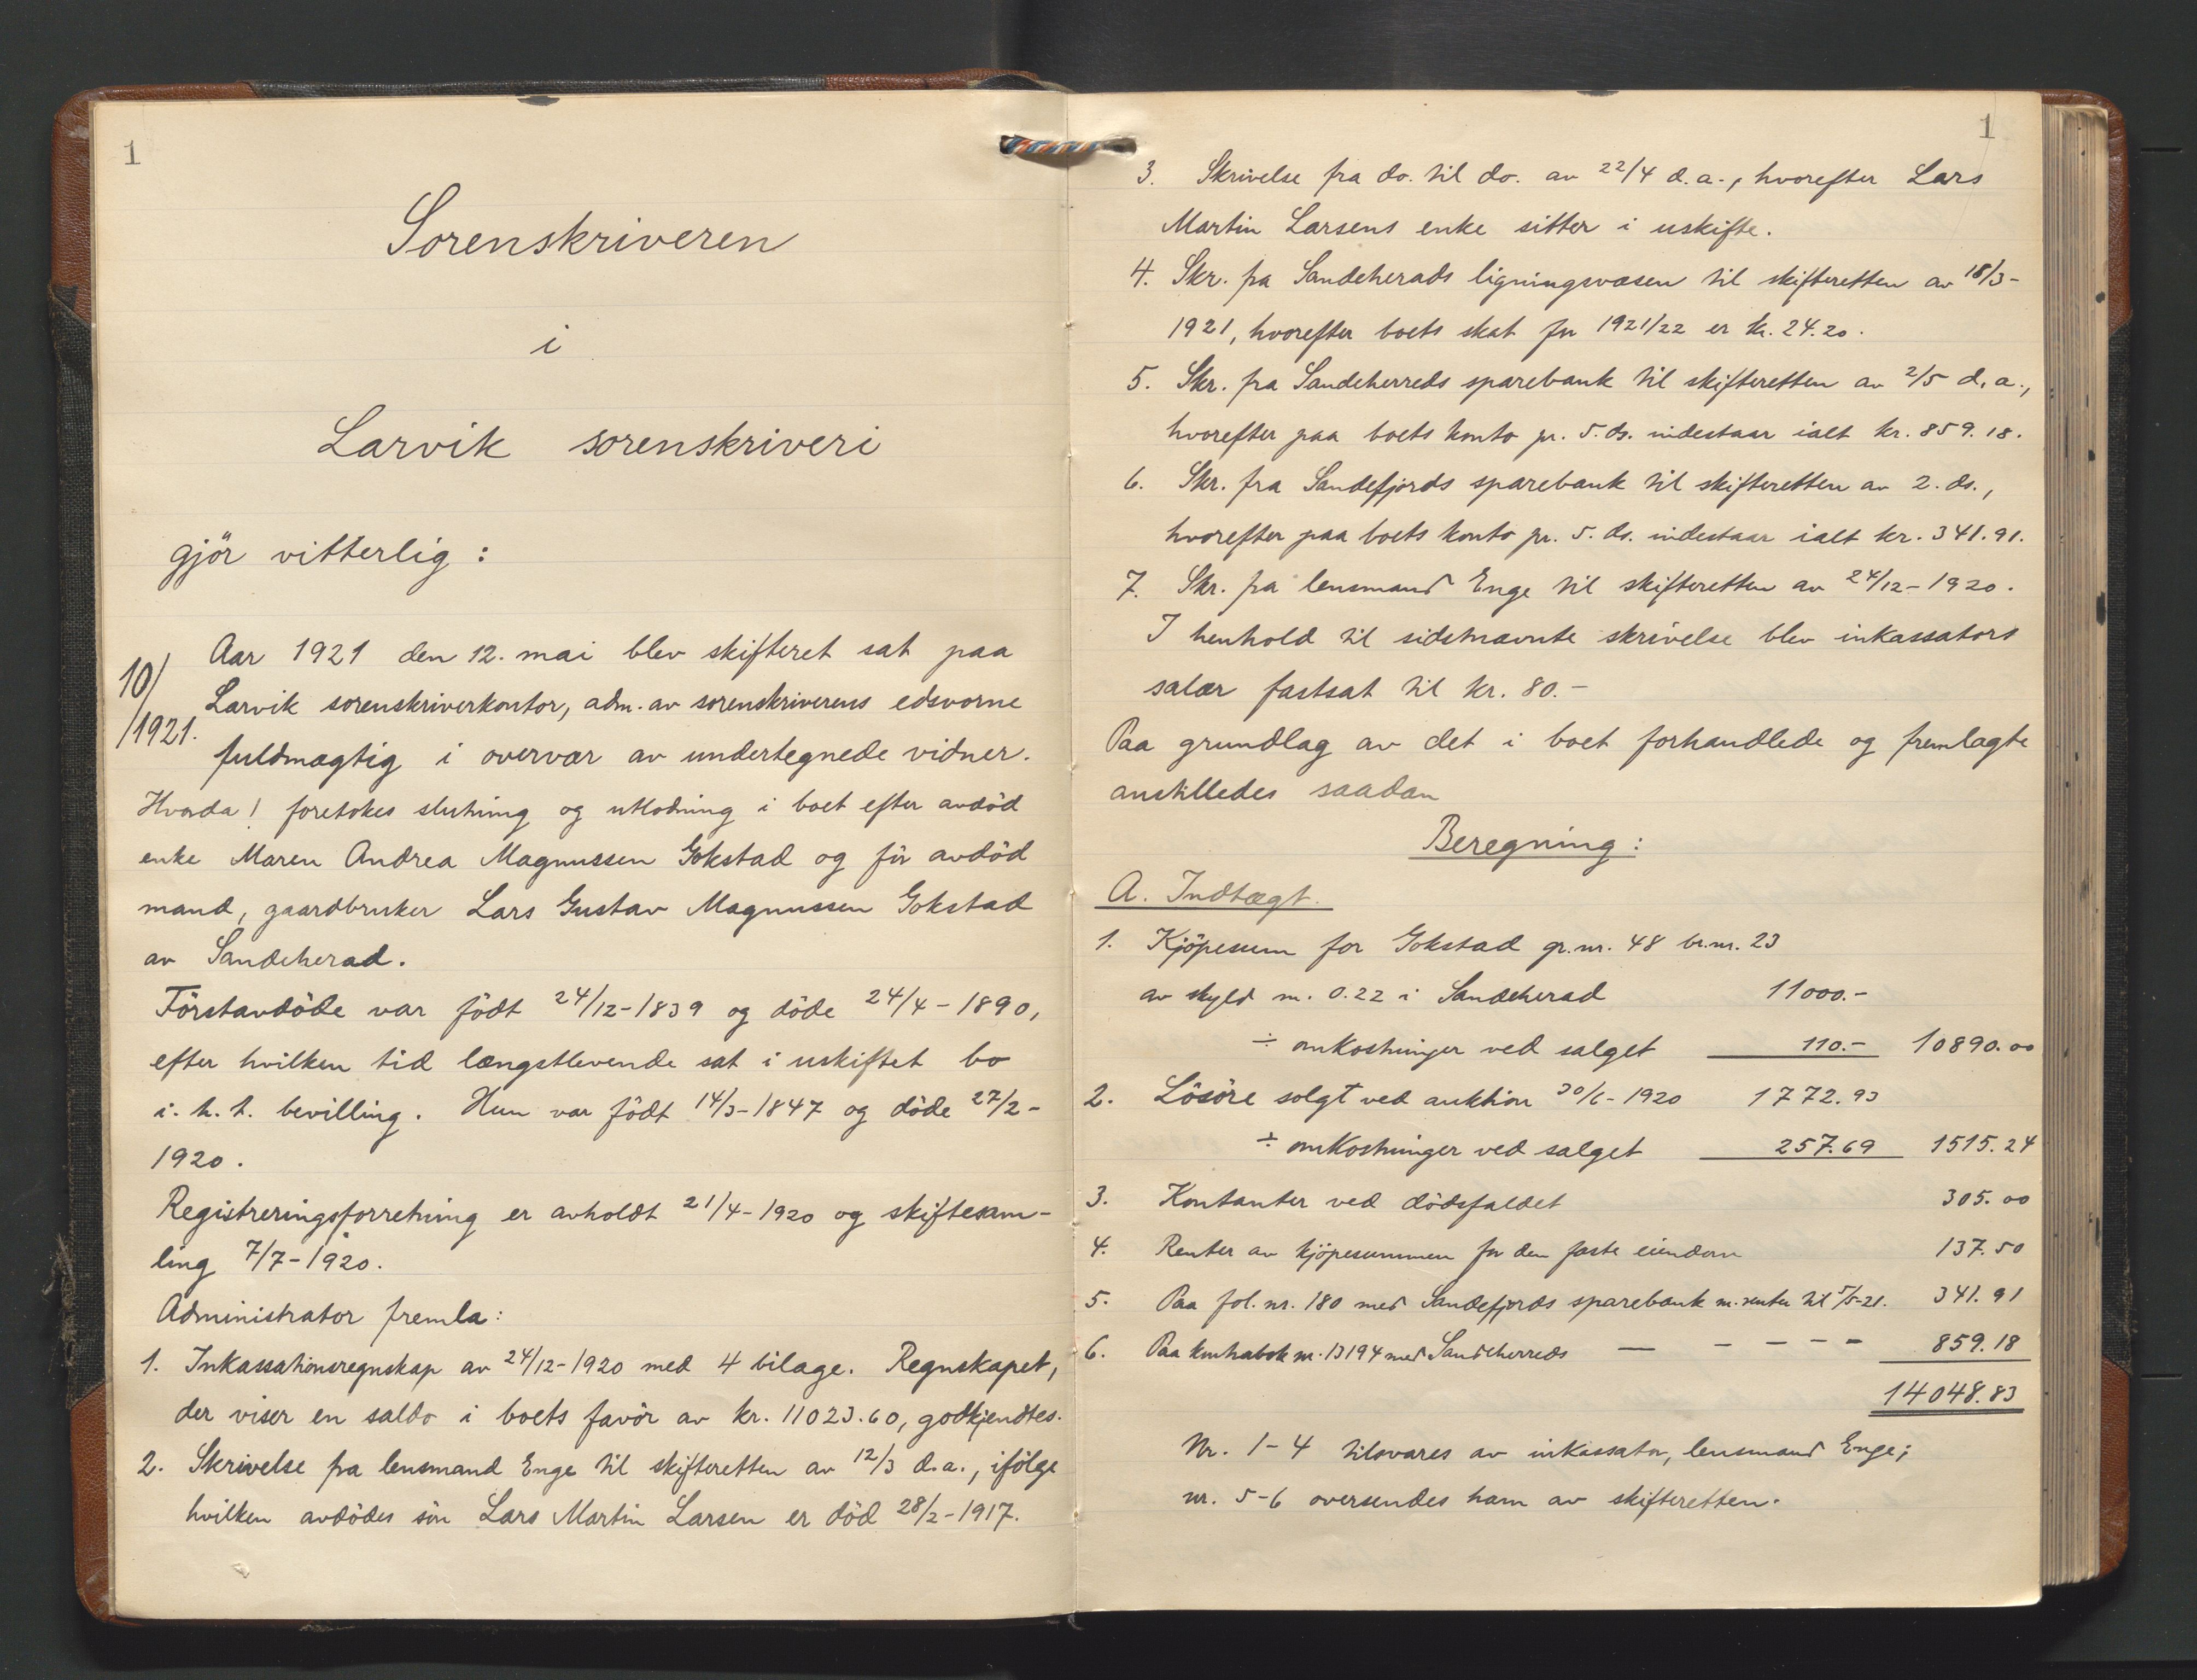 1
Sorenskriveren
i
Larvik sorenskriveri
gjör vitterlig:
10/
/1921.
Aar 1921 den 12. mai blev skifteret sat paa
Larvik sorenskriverkontor, adm. av sorenskriverens edsvorne
fuldmægtig i overvær av undertegnede vidner.
Hvorda! foretokes slutning og utlodning i boet efter avdöd
enke Maren Andrea Magnussen Gokstad og för avdöd
mand, gaardbruker Lars Gustav Magnussen Gokstad
av Sandeherad.
Förstavdöde var födt 24/12-1839 og döde 24/4-1890,
efter hvilken tid længstlevende sat i uskiftet bo
i. h. t. bevilling. Hun var födt 14/3-1847 og döde 27/2-
1920.
Registreringsforretning er avholdt 21/4-1920 og skiftesam-
ling 7/7-1920.
Administrator fremla:
1. Inkassationsregnskap av 24/12-1920 med 4 bilage. Regnskapet,
der viser en saldo i boets favör av kr. 11023.60, godkjendtes.
2. Skrivelse fra lensmand Enge til skifteretten av 12/3 d.a., ifölge
hvilken avdödes sön Lars Martin Larsen er död 28/2-1917.
1
3. Skrivelse fra do. til do. av 22/4 d.a., hvorefter Lars
Martin Larsens enke sitter i uskifte.
4. Skr. fra Sandeherads ligningsvæsen til skifteretten av 18/3-
1921, hvorefter boets skat for 1921/22 er kr. 24.20.
5. Skr. fra Sandeherreds sparebank til skifteretten av 2/5 d.a.,
hvorefter paa boets konto pr. 5. ds. indestaar ialt kr. 859.18.
6. Skr. fra Sandefjords sparebank til skifteretten av 2. ds.,
hvorefter paa boets konto pr. 5. ds. indestaar ialt kr. 341.91.
7. Skr. fra lensmand Enge til skifteretten av 24/12-1920.
I henhold til sidstnævnte skrivelse blev inkassators
salær fastsat til kr. 80.-
Paa grundlag av det i boet forhandlede og fremlagte
anstilledes saadan
Beregning:
A. Indtægt.
1. Kjöpesum for Gokstad gr.nr. 48 br.nr. 23
av skyld m. 0.22 i Sandeherad 11000.-
÷ omkostninger ved salget 110.- 10890.00
2. Lösöre solgt ved auktion 30/6-1920 1772.93
÷ omkostninger ved salget 257.69 1515.24
3. Kontanter ved dödsfaldet 305.00
4. Renter av kjöpesummen for den faste eiendom 137.50
5. Paa fol. nr. 180 med Sandefjords sparebank m. renter til 5/5-21. 341.91
6. Paa kontrabok nr. 13194 med Sandeherreds — — — — — 859.18
14048.83
Nr. 1-4 tilsvares av inkassator, lensmand Enge;
nr. 5-6 oversendes ham av skifteretten.